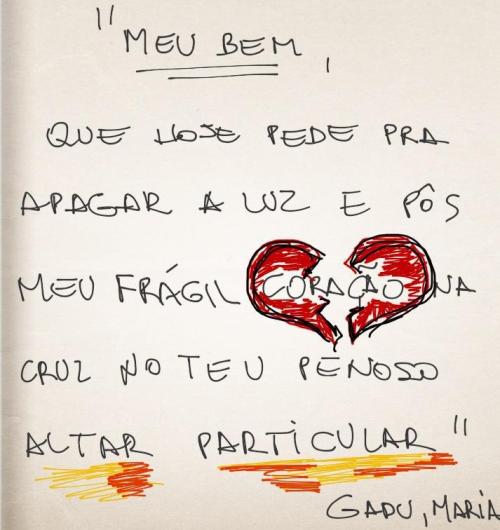 "MEU BEM,
QUE HOJE PEDE PRA
APAGAR A LUZ E PÔS
MEU FRÁGIL CORAÇÃO NA
CRUZ NO TEU PENOSO
ALTAR PARTICULAR"
GADU, MARIA